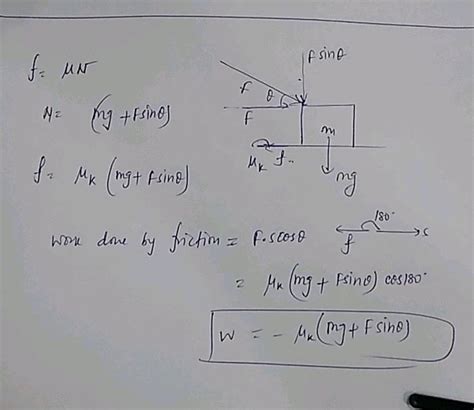 f = μN
N = (mg + Fsinθ)
f = μk (mg + Fsinθ)
Fsinθ
F
θ
F
m
μk f
mg
work done by friction = F.s cosθ
180°
f
s
= μk (mg + Fsinθ) cos180°
W = - μk (mg + Fsinθ)